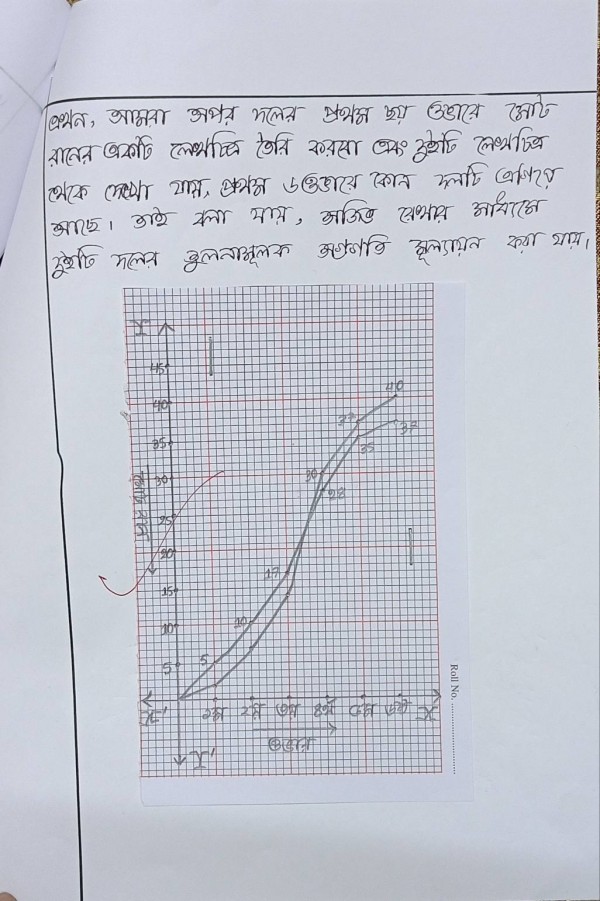 এখন, আমরা অপর দলের প্রথম ছয় ওভারে মোট
রানের একটি লেখচিত্র তৈরি করবো এবং দুইটি লেখচিত্র
থেকে দেখা যায়, প্রথম ৬ওভারে কোন দলটি এগিয়ে
আছে। তাই বলা যায়, অজিভ রেখার মাধ্যমে
দুইটি দলের তুলনামূলক অগ্রগতি মূল্যায়ন করা যায়।
Y
45
40
40
37
37
35
35
30
30
28
25
20
17
15
10
10
5
5
X'
১ম ২য় ৩য় ৪র্থ ৫ম ৬ষ্ঠ X
ওভার
Y'
Roll No.